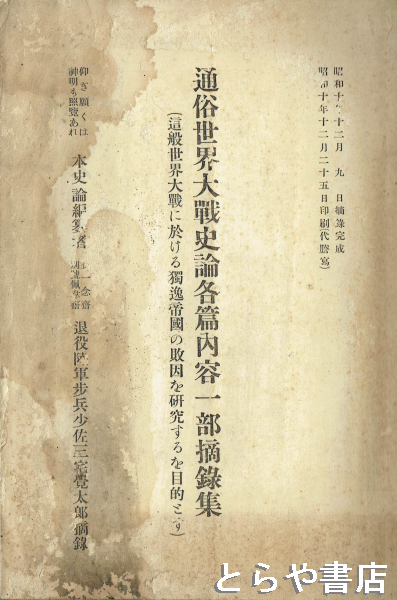 昭和十年十二月九日摘錄完成
昭和十年十二月二十五日印刷(代謄寫)
通俗世界大戰史論各篇內容一部摘錄集
(這般世界大戰に於ける獨逸帝國の敗因を研究するを目的とす)
仰ぎ願くは
神明も照覽あれ
本史論編纂者
一念齋
佩弦齋
退役陸軍步兵少佐三宅覺太郎摘錄
とらや書店